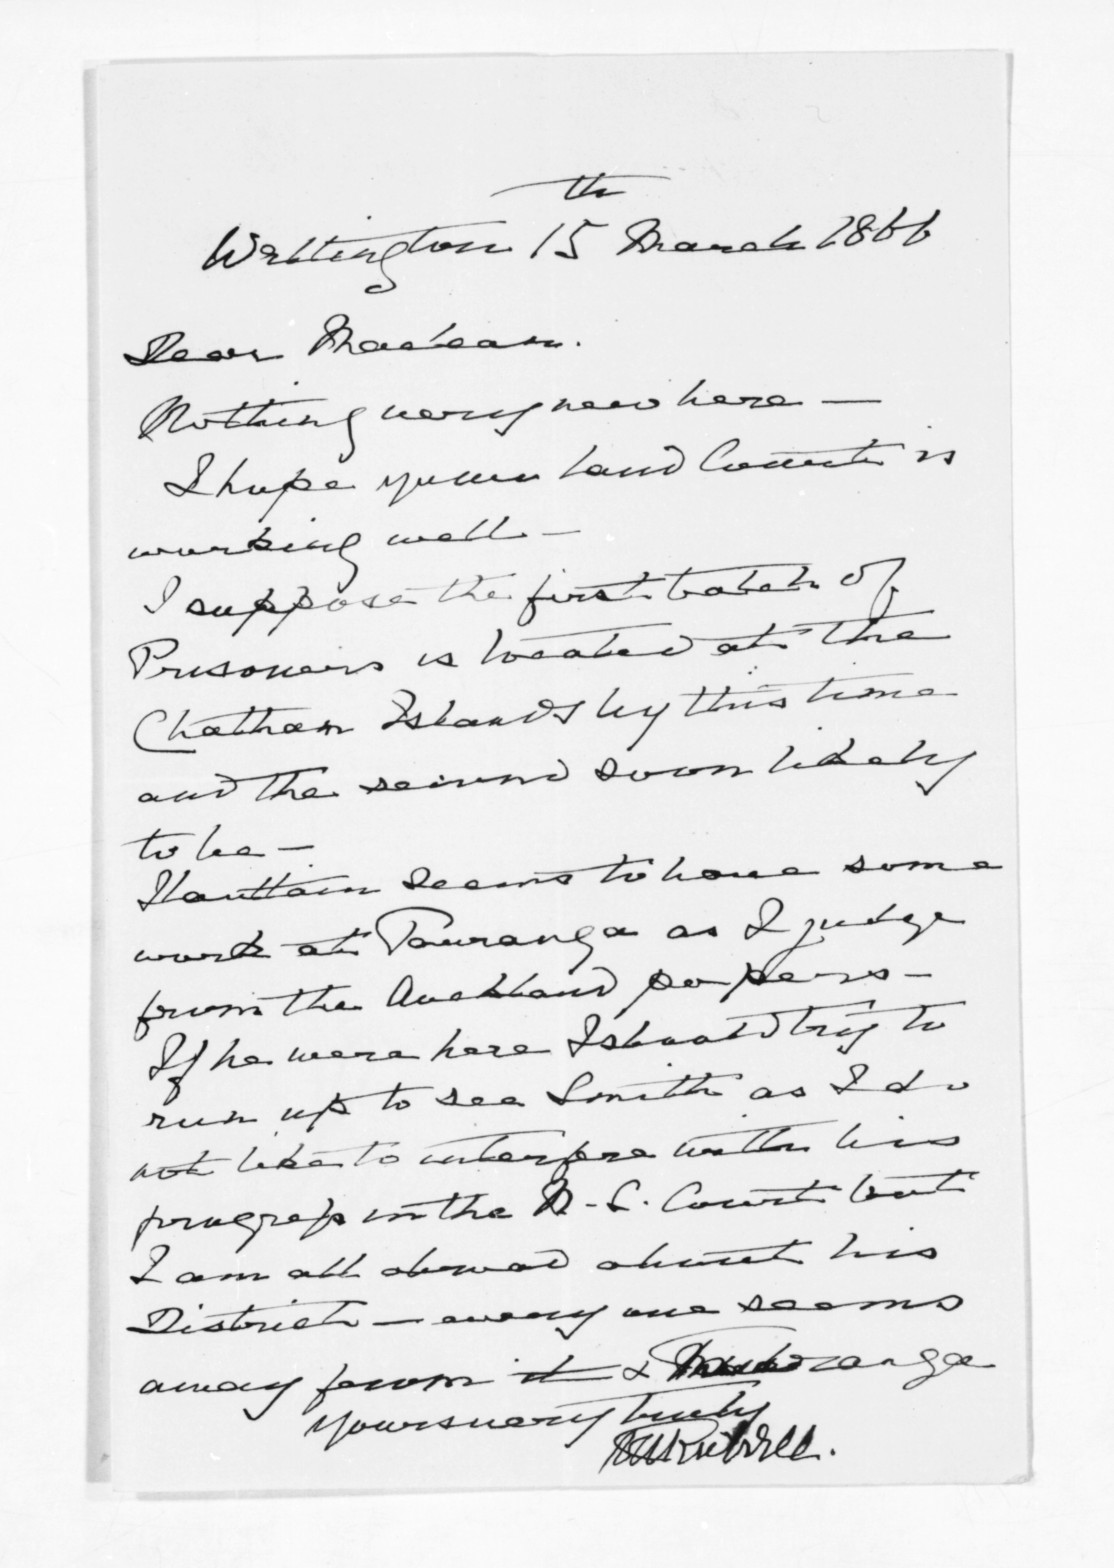 Wellington 15th March 1866
Dear Maclean.
Nothing very new here —
I hope your Land Court is
working well —
I suppose the first batch of
Prisoners is located at the
Chatham Islands by this time
and the second soon likely
to be —
Haultain seems to have some
work at Tauranga as I judge
from the Auckland papers —
If he were here I should try to
run up to see Smith as I do
not like to interfere with his
progress in the N. L. Court but
I am all abroad about his
District — every one seems
away from it &
Yours very truly